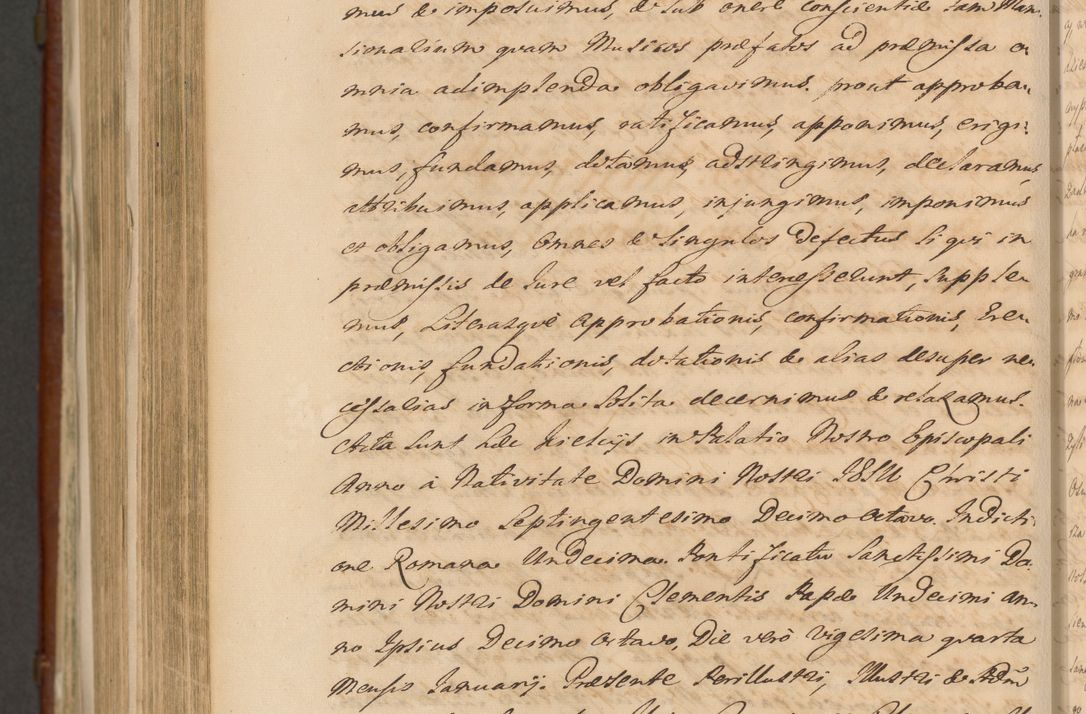 mus & imposuimus, & sub onere conscientiæ tam Man-
sionalium quam Musicos præfatos ad præmissa o-
mnia adimplenda obligavimus. prout approba-
mus, confirmamus, ratificamus, apponimus, erigi-
mus, fundamus, dotamus, adstringimus, declaramus,
attribuimus, applicamus, injungimus, imponimus
et obligamus, Omnes & singulos Defectus si qui in
præmissis de Jure vel facto interesserunt, supple-
mus, Literasque Approbationis, confirmationis, Ere-
ctionis, fundationis, dotationis & alias desuper ne-
cessarias in forma solita decernimus & relaxamus.
Acta sunt hæc Kielcijs in Palatio Nostro Episcopali
Anno à Nativitate Domini Nostri JESU Christi
Millesimo Septingentesimo Decimo Octavo. Indicti-
one Romana Undecima. Pontificatu Sanctissimi Do-
mini Nostri Domini Clementis Papæ Undecimi an-
no Ipsius Decimo Octavo, Die verò Vigesima quarta
Mensis Januarij. Præsente Perillustri, Illustri & Adm